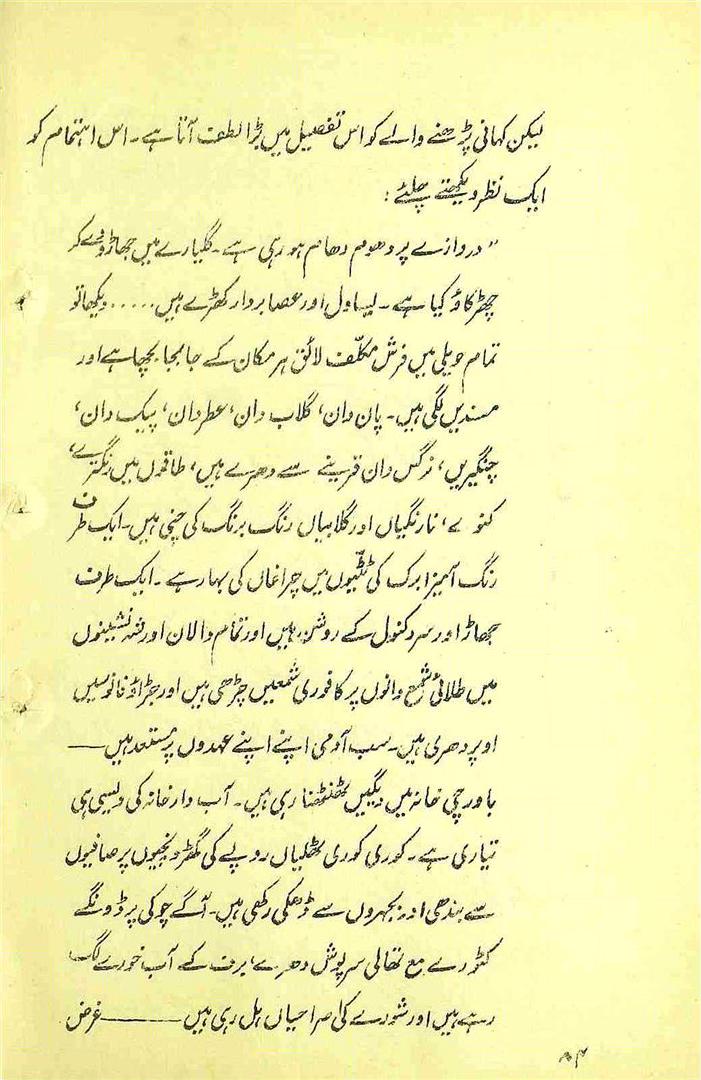 لیکن کہانی پڑھنے والے کو اس تفصیل میں بڑا لطف آتا ہے۔ اس اہتمام کو
ایک نظر دیکھتے چلئے :
” دروازے پر دھوم دھام ہو رہی ہے۔ گلیارے میں جھاڑو دے کر
چھڑکاؤ کیا ہے ۔ یساول اور عصا بردار کھڑے ہیں ..... دیکھا تو
تمام حویلی میں فرش مکلّف لائق ہر مکان کے جابجا بچھا ہے اور
مسندیں لگی ہیں۔ پان دان، گلاب دان، عطر دان، پیک دان،
چنگیریں، نرگس دان قرینے سے دھرے ہیں، طاقوں میں رنگترے،
کنولے، نارنگیاں اور گلابیاں رنگ برنگ کی چنی ہیں۔ ایک طرف
رنگ آمیز ابرک کی ٹٹّیوں میں چراغاں کی بہار ہے ۔ ایک طرف
جھاڑ اور سرد کنول کے روشن ہیں اور تمام دالان اور شہ نشینوں
میں طلائی شمع دانوں پر کافوری شمعیں چڑھی ہیں اور جڑاؤ فانوسیں
اوپر دھری ہیں۔ سب آدمی اپنے اپنے عہدوں پر مستعد ہیں —
باورچی خانہ میں دیگیں ٹھنٹھنا رہی ہیں۔ آب دار خانہ کی ویسی ہی
تیاری ہے ۔ کوری کوری ٹھلیاں روپے کی گھڑونچیوں پر صافیوں
سے بندھی اور بجھروں سے ڈھکی رکھی ہیں۔ آگے چوکی پر ڈونگے
کٹورے مع تھالی سرپوش دھرے، برف کے آب خورے لگ
رہے ہیں اور شورے کی صراحیاں ہل رہی ہیں —— غرض